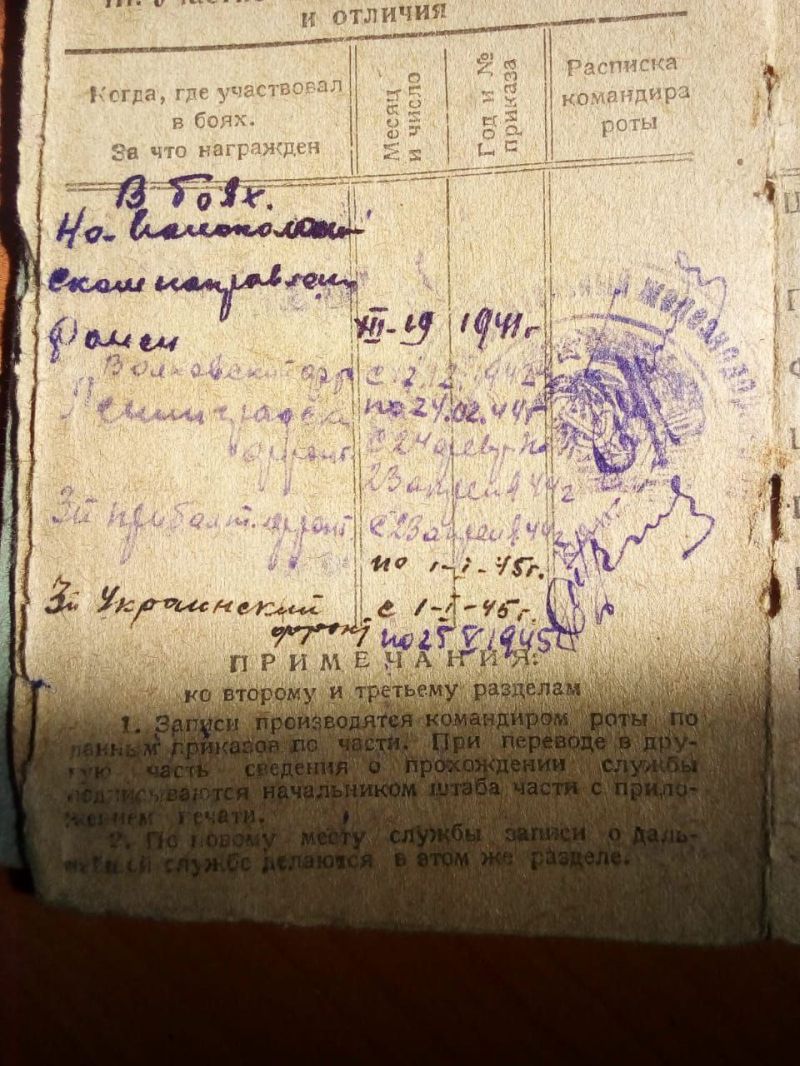 III. Участие
и отличия
Когда, где участвовал
в боях.
За что награжден
Месяц
и число
Год и №
приказа
Расписка
командира
роты
В боях.
На
ском направлен
1941 г.
Волховский фр. с 2.12.1942
по 24.02.44 г
фронт. с 24 февр по
23 апреля 44 г
3й прибалт. фронт. с 23 апреля 44 г
по 1-I-45 г.
3й Украинский с 1-I-45 г.
фронт по 25 V 1945
железнодо
ПРИМЕЧАНИЯ:
ко второму и третьему разделам
1. Записи производятся командиром роты по
данным приказов по части. При переводе в дру-
гую часть сведения о прохождении службы
подписываются начальником штаба части с прило-
жением печати.
2. По новому месту службы записи о даль-
службе делаются в этом же разделе.